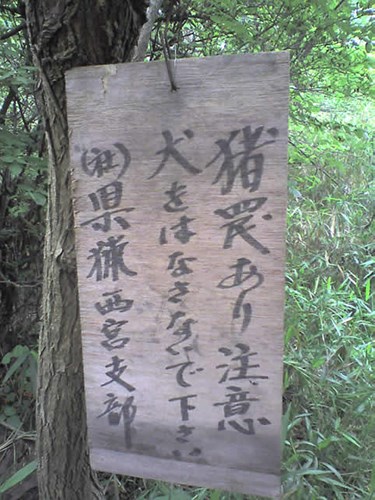 猪罠あり注意
犬をはなさないで下さい
(社)県猟西宮支部